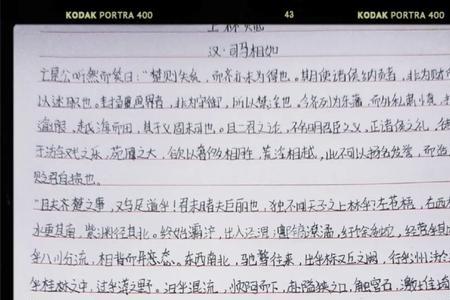 KODAK PORTRA 400 43 KODAK PORTRA 400
上林赋
汉·司马相如
亡是公听然而笑曰:“楚则失矣,而齐亦未为得也。使诸侯纳贡者,非为财
以述职也。封疆画界者,非为守御,所以禁淫也。今齐列为东藩,而外私肃慎,
逾限,越海而田,其于义固未可也。且二君之论,不务明君臣之义,正诸侯之礼,徒
于游戏之乐,苑囿之大,欲以奢侈相胜,荒淫相越,此不可以扬名发誉,而适
贬君自损也。
“且夫齐楚之事,又乌足道乎!君未睹夫巨丽也,独不闻天子之上林乎?左苍梧,右西
水更其南,紫渊径其北。终始灞浐,出入泾渭;酆镐潦潏,纡馀委蛇,经营其
乎八川分流,相背而异态。东西南北,驰骛往来,出乎椒丘之阙,行乎洲淤
乎桂林之中,过乎之野。汩乎混流,顺阿而下,赴隘狭之口,触穹石,激堆埼